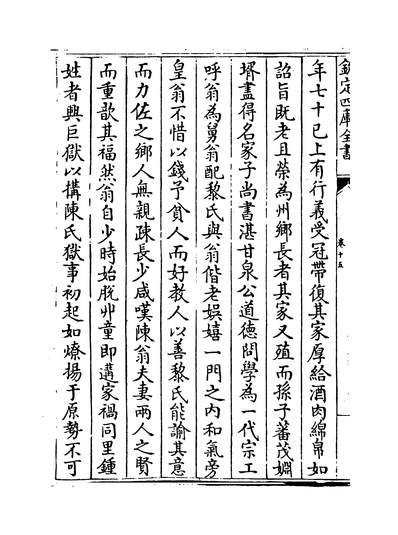 欽定四庫全書
卷十五
年七十已上有行義受冠帶復其家厚給酒肉綿帛如
詔旨既老且榮為州鄉長者其家又殖而孫子蕃茂婣
壻盡得名家子尚書湛甘泉公道德問學為一代宗工
呼翁為舅翁配黎氏與翁偕老娯嬉一門之内和氣旁
皇翁不惜以錢予貧人而好教人以善黎氏能諭其意
而力佐之鄉人無親疎長少咸嘆陳翁夫妻兩人之賢
而重歆其福然翁自少時始脱丱童即遘家禍同里鍾
姓者興巨獄以搆陳氏獄事初起如燎揚于原勢不可